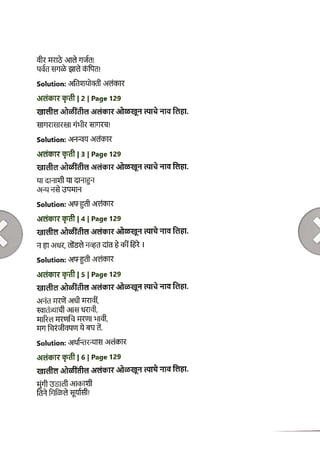 वीर मराठे आले गर्जत!
पर्वत सगळे झाले कंपित!
Solution: अतिशयोक्ती अलंकार
अलंकार कृती | 2 | Page 129
खालील ओळींतील अलंकार ओळखून त्याचे नाव लिहा.
सागरासारखा गंभीर सागरच!
Solution: अनन्वय अलंकार
अलंकार कृती | 3 | Page 129
खालील ओळींतील अलंकार ओळखून त्याचे नाव लिहा.
या दानाशी या दानाहुन
अन्य नसे उपमान
Solution: अपन्हुती अलंकार
अलंकार कृती | 4 | Page 129
खालील ओळींतील अलंकार ओळखून त्याचे नाव लिहा.
न हा अधर, तोंडले नव्हत दांत हे कीं हिरे ।
Solution: अपन्हुती अलंकार
अलंकार कृती | 5 | Page 129
खालील ओळींतील अलंकार ओळखून त्याचे नाव लिहा.
अनंत मरणें अधी मरावीं,
स्वातंत्र्याची आस धरावी,
मारिल मरणचि मरणा भावीं,
मग चिरंजीवपण ये बघ तें.
Solution: अर्थान्तरन्यास अलंकार
अलंकार कृती | 6 | Page 129
खालील ओळींतील अलंकार ओळखून त्याचे नाव लिहा.
मुंगी उडाली आकाशी
तिने गिळिले सूर्यासी!